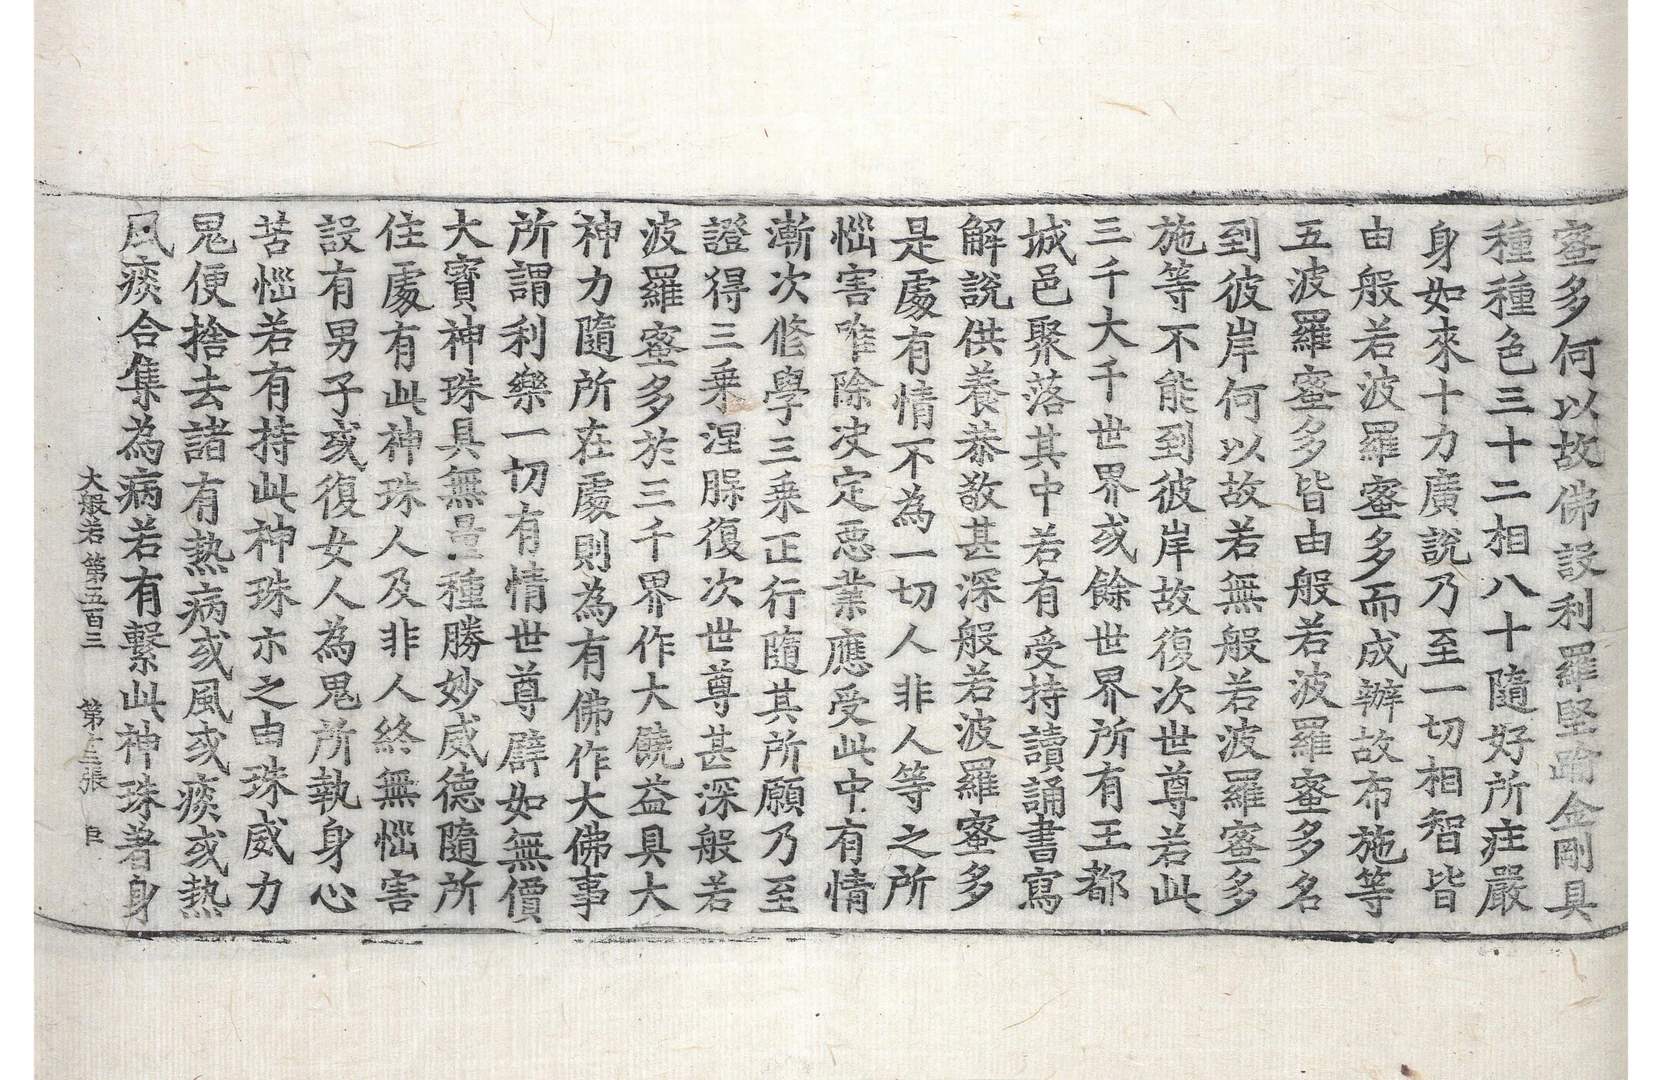 蜜多何以故佛設利羅堅踰金剛具
種種色三十二相八十隨好所庄嚴
身如來十力廣說乃至一切相智皆
由般若波羅蜜多而成辦故布施等
五波羅蜜多皆由般若波羅蜜多名
到彼岸何以故若無般若波羅蜜多
施等不能到彼岸故復次世尊若此
三千大千世界或餘世界所有王都
城邑聚落其中若有受持讀誦書寫
解說供養恭敬甚深般若波羅蜜多
是處有情不為一切人非人等之所
惱害唯除决定惡業應受此中有情
漸次修學三乘正行隨其所願乃至
證得三乘涅脲復次世尊甚深般若
波羅蜜多於三千界作大饒益具大
神力隨所在處則為有佛作大佛事
所謂利樂一切有情世尊譬如無價
大寶神珠具無量種勝妙威德隨所
住處有此神珠人及非人終無惱害
設有男子或復女人為鬼所執身心
苦惱若有持此神珠示之由珠威力
鬼便捨去諸有熱病或風或痰或熱
風痰合集為病若有繫此神珠著身
大般若第五百三 第十三張